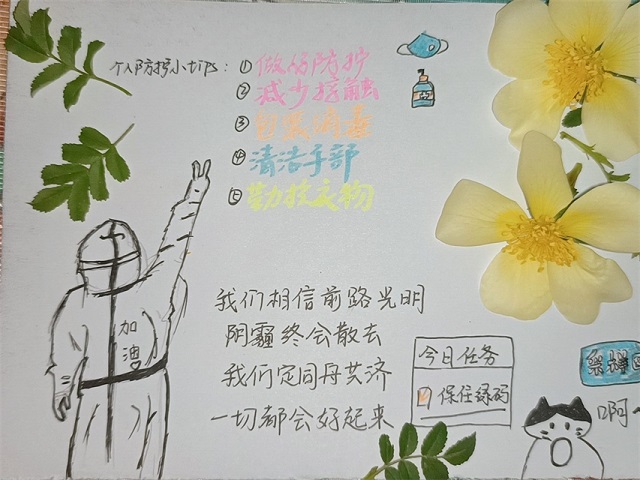 个人防护小tips:
①做好防护
②减少接触
③包裹消毒
④清洁手部
⑤勤换衣物
加油
我们相信前路光明
阴霾终会散去
我们定同舟共济
一切都会好起来
今日任务
保住绿码
啊